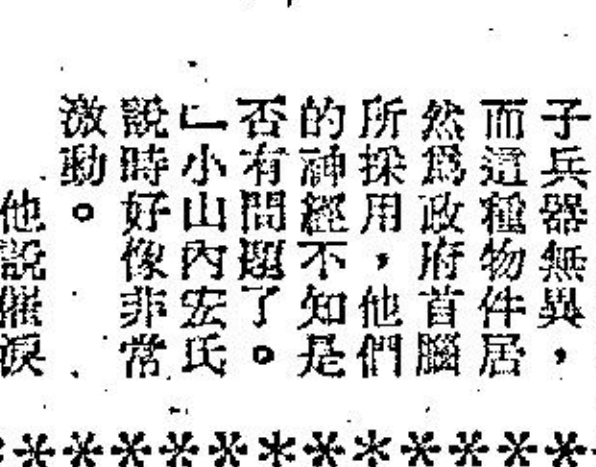 子兵器無異，
而這種物件居
然爲政府首腦
所採用，他們
的神經不知是
否有問題了。
﹂小山內宏氏
說時好像非常
激動。
他說催淚